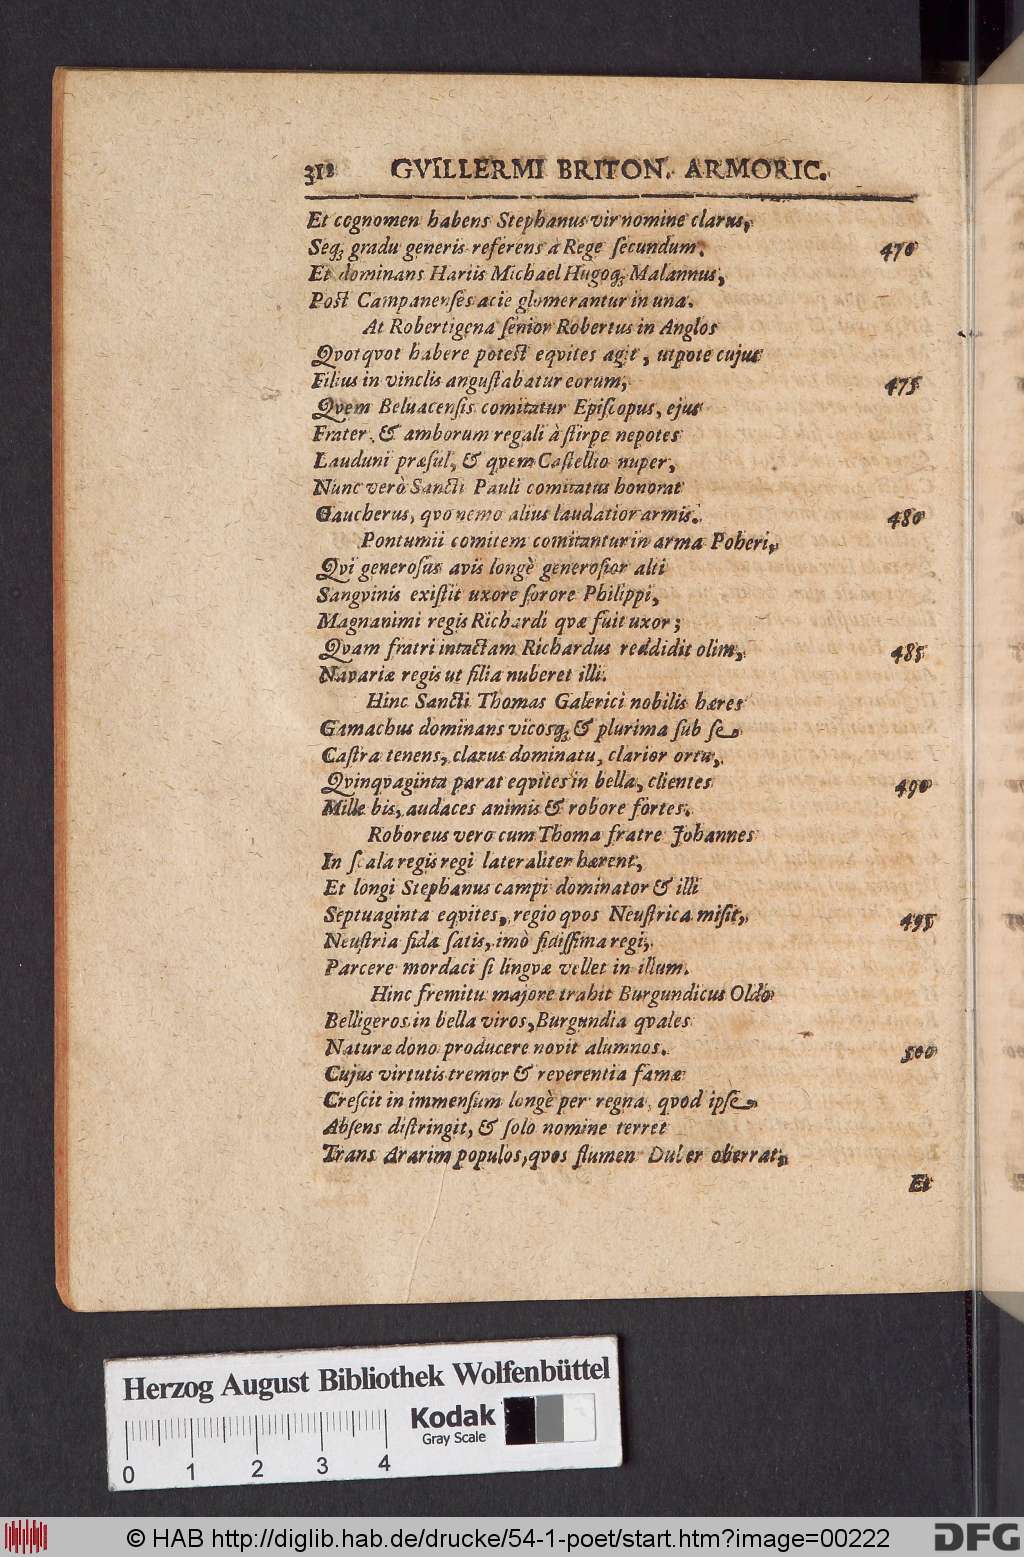 318 GVILLERMI BRITON. ARMORIC.
Et cognomen habens Stephanus vir nomine clarus,
Seq; gradu generis referens à Rege ſecundum. 470
Et dominans Hariis Michael Hugoq; Malannus,
Poſt Campanenſes acie glomerantur in una.
At Robertigena ſenior Robertus in Anglos
Qvotqvot habere poteſt eqvites agit, utpote cujus
Filius in vinclis anguſtabatur eorum, 475
Qvem Beluacenſis comitatur Epiſcopus, ejus
Frater, & amborum regali à ſtirpe nepotes
Lauduni præſul, & qvem Caſtellio nuper,
Nunc verò Sancti Pauli comitatus honorat
Gaucherus, qvo nemo alius laudatior armis. 480
Pontumii comitem comitantur in arma Poheri,
Qvi generoſus avis longè generoſior alti
Sangvinis exiſtit uxore ſorore Philippi,
Magnanimi regis Richardi qvæ fuit uxor;
Qvam fratri intactam Richardus reddidit olim, 485
Navariæ regis ut filia nuberet illi.
Hinc Sancti Thomas Galerici nobilis hæres
Gamachus dominans vicosq; & plurima ſub ſe
Caſtra tenens, clarus dominatu, clarior ortu,
Qvinqvaginta parat eqvites in bella, clientes 490
Mille bis, audaces animis & robore fortes.
Roboreus vero cum Thoma fratre Johannes
In ſcala regis regi lateraliter hærent,
Et longi Stephanus campi dominator & illi
Septuaginta eqvites, regio qvos Neuſtrica miſit, 495
Neuſtria fida ſatis, imò fidiſſima regi,
Parcere mordaci ſi lingvæ vellet in illum.
Hinc fremitu majore trahit Burgundicus Oldo
Belligeros in bella viros, Burgundia qvales
Naturæ dono producere novit alumnos. 500
Cujus virtutis tremor & reverentia famæ
Creſcit in immenſum longè per regna, qvod ipſe
Abſens diſtringit, & ſolo nomine terret
Trans Ararim populos, qvos flumen Duber oberrat,
Et
Herzog August Bibliothek Wolfenbüttel
Kodak
Gray Scale
0 1 2 3 4
© HAB http://diglib.hab.de/drucke/54-1-poet/start.htm?image=00222
DFG